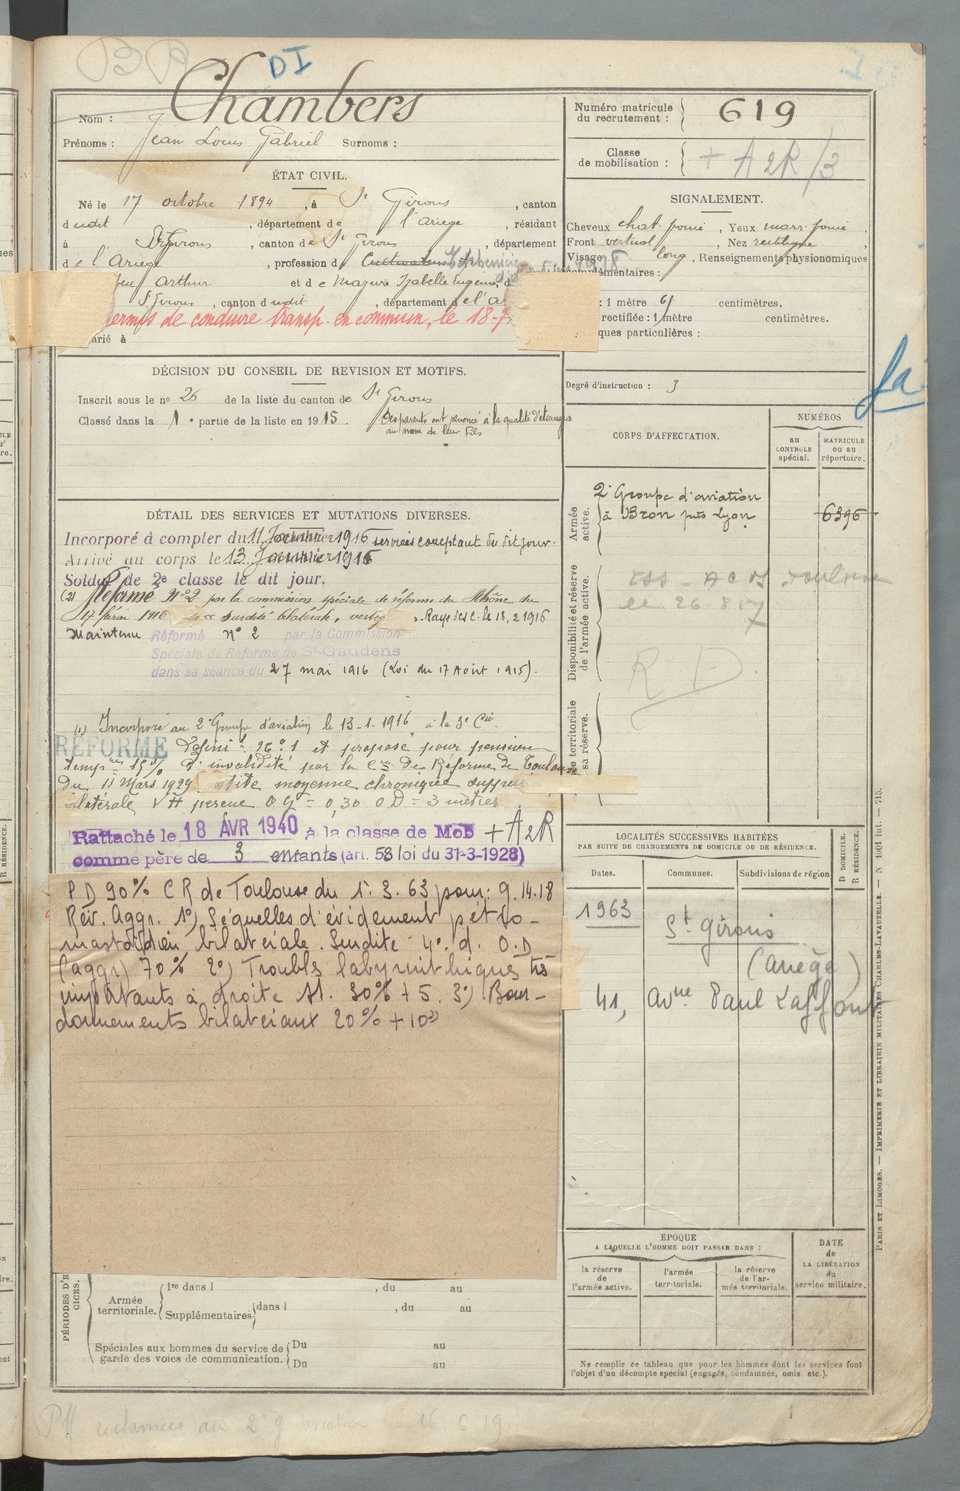 DI
Chambers
Nom :
Prénoms : Jean Louis Gabriel Surnoms :
Numéro matricule du recrutement : 619
Classe de mobilisation : + A 2R /3
ÉTAT CIVIL.
Né le 17 octobre 1894, à St Girons, canton
dudit, département de l'Ariège, résidant
à St Girons, canton de St Girons, département
de l'Ariège, profession de Cultivateur
feu Arthur et de Majuré Isabelle Eugénie, d
St Girons, canton dudit, département de l'A
ermis de conduire transp. en commun, le 18-7
arié à
SIGNALEMENT.
Cheveux chat. foncé, Yeux marr. foncé
Front vertical, Nez rectiligne
Visage long, Renseignements physionomiques
complémentaires :
: 1 mètre 61 centimètres.
rectifiée : 1 mètre centimètres.
ques particulières :
Degré d'instruction : 3
fa
DÉCISION DU CONSEIL DE REVISION ET MOTIFS.
Inscrit sous le no 26 de la liste du canton de St Girons
Classé dans la 1e partie de la liste en 1915. Ses parents ont renoncé à la qualité d'étranger
au nom de leur fils
CORPS D'AFFECTATION.
NUMÉROS
AU CONTROLE spécial.
MATRICULE ou au répertoire.
Armée active.
2e Groupe d'aviation
à Bron près Lyon
6396
Disponibilité et réserve de l'armée active.
Toulouse
R D.
e territoriale
sa réserve.
DÉTAIL DES SERVICES ET MUTATIONS DIVERSES.
Incorporé à compter du 11 Janvier 1916 services comptant du dit jour.
Arrivé au corps le 13 Janvier 1916
Soldat de 2e classe le dit jour.
(2) Réformé No 2 par la commission spéciale de réforme du Rhône du
17 février 1916 surdité bilatérale, Rayé des c. le 18.2.1916
Maintenu Réformé no 2 par la Commission
Spéciale de Réforme de St-Gaudens
dans sa séance du 27 mai 1916 (Loi du 17 Août 1915).
(1) Incorporé au 2e Groupe d'aviation le 13-1-1916 à la 3e Cie
RÉFORMÉ Définif no 1 et proposé pour pension
tempre 15% d'invalidité par la Con De Réforme de Toulouse
Du 11 Mars 1929 otite moyenne chronique suppurée
bilatérale VH perçue O G = 0,30 O D = 3 mètres
Rattaché le 18 AVR 1940 à la classe de Mob + A 2R
comme père de 3 enfants (art. 58 loi du 31-3-1928)
P D 90% C R de Toulouse du 1. 3. 63 pour : g. 14.18
Rév. Aggr. 1°) Séquelles d'évidement pétro-
mastoïdien bilatérale. Surdité 4e d. O.D
(aggr) 70% 2°) Troubles labyrinthiques très
importants à droite 30% + 5. 3°) Bour-
donnements bilatéraux 20% + 10
LOCALITÉS SUCCESSIVES HABITÉES
PAR SUITE DE CHANGEMENTS DE DOMICILE OU DE RÉSIDENCE.
Dates.
Communes.
Subdivisions de région
D DOMICILE.
R RÉSIDENCE.
1963
St Girons
(Ariège)
41, Avnue Paul Laffont
ÉPOQUE
A LAQUELLE L'HOMME DOIT PASSER DANS :
la réserve de l'armée active.
l'armée territoriale.
la réserve de l'armée territoriale.
DATE de LA LIBÉRATION du service militaire.
Ne remplir ce tableau que pour les hommes dont les services font
l'objet d'un décompte spécial (engagés, condamnés, omis etc.).
PÉRIODES D'E
CICES.
Armée territoriale.
1re dans l , du au
Supplémentaires dans l , du au
Spéciales aux hommes du service de
garde des voies de communication.
Du au
Du au
PARIS ET LIMOGES. — IMPRIMERIE ET LIBRAIRIE MILITAIRES CHARLES-LAVAUZELLE. — N 1001 int. — 715.